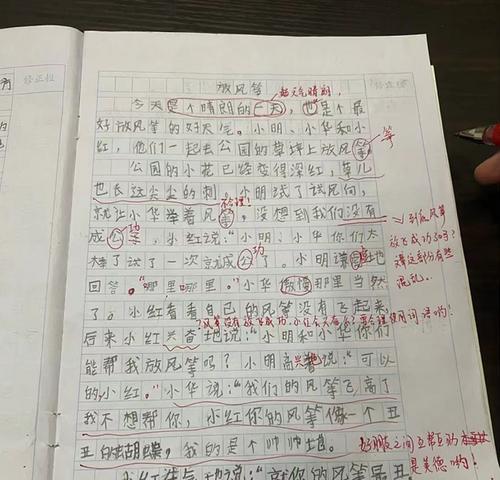 修正栏
放风筝
今天天气晴朗,
今天是个晴朗的一天，也是个最
好放风筝的好天气。小明、小华和小
红，他们一起去公园的草坪上放风筝
筝
公园的小花已经变得深红，草儿
也长这尖尖的刺。小明试了试风向，
不合理!
就让小华举着风筝，没想到我们没有
功
成公，小红说：“小明、小华你们太
到底风筝
放飞成功了吗?
文章这部分有些
混乱。
功
棒了试了一次就成公了。小明谦虚地
回答。“哪里哪里。”小华傲慢那里当然
了。小红看看自己的风筝没有飞起来，
后来小红兴奋地说：“小明和小华你们
能帮我放风筝吗？小明高兴地说：“可以
的小红。”小华说：“我们的风筝飞高了
我不想帮你，小红你的风筝像一个丑
丑的蝴蝶，我的是个帅帅
好朋友之间互帮互助
是美德哟!